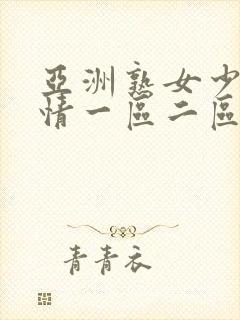 亞洲熟女少
情一區二區
青青衣